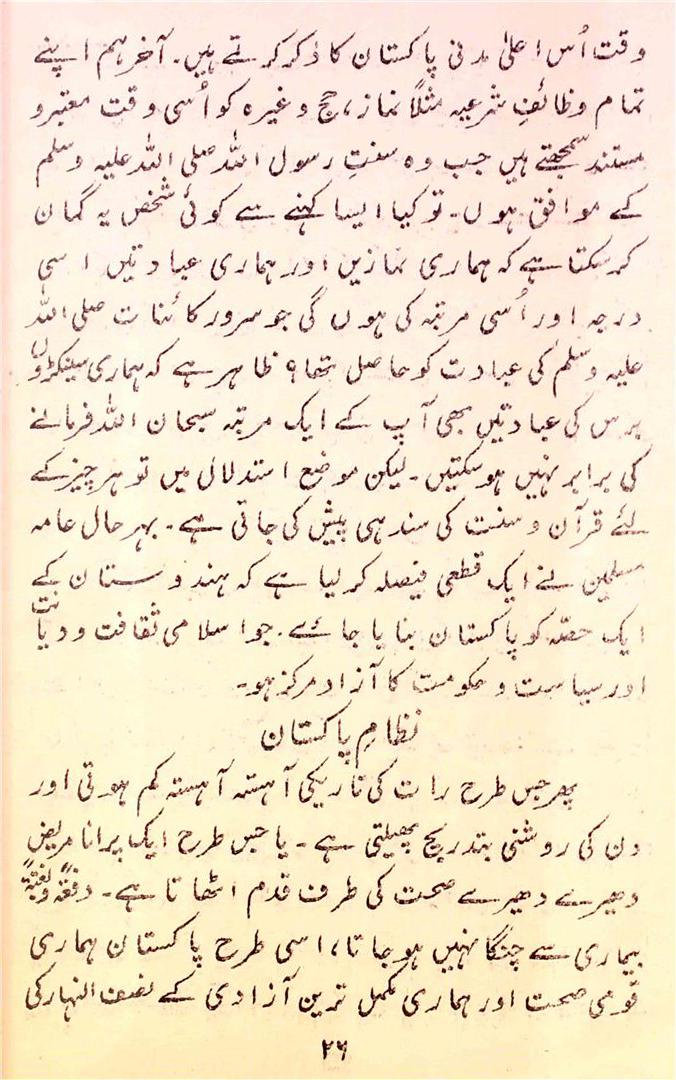 وقت اُس اعلیٰ مدنی پاکستان کا ذکر کرتے ہیں۔ آخر ہم اپنے
تمام وظائفِ شرعیہ مثلاً نماز، حج وغیرہ کو اُسی وقت معتبر و
مستند سمجھتے ہیں جب وہ سنتِ رسول اللہ صلی اللہ علیہ وسلم
کے موافق ہوں۔ تو کیا ایسا کہنے سے کوئی شخص یہ گمان
کر سکتا ہے کہ ہماری نمازیں اور ہماری عبادتیں اسی
درجہ اور اُسی مرتبہ کی ہوں گی جو سرور کائنات صلی اللہ
علیہ وسلم کی عبادت کو حاصل تھا؟ ظاہر ہے کہ ہماری سینکڑوں
برس کی عبادتیں بھی آپ کے ایک مرتبہ سبحان اللہ فرمانے
کی برابر نہیں ہو سکتیں۔ لیکن موضع استدلال میں تو ہر چیز کے
لئے قرآن و سنت کی سند ہی پیش کی جاتی ہے۔ بہر حال عامہ
مسلمین نے ایک قطعی فیصلہ کر لیا ہے کہ ہندوستان کے
ایک حصّہ کو پاکستان بنایا جائے۔ جو اسلامی ثقافت و دیانت
اور سیاست و حکومت کا آزاد مرکز ہو۔
نظامِ پاکستان
پھر جس طرح رات کی تاریکی آہستہ آہستہ کم ہوتی اور
دن کی روشنی بتدریج پھیلتی ہے۔ یا جس طرح ایک پرانا مریض
دھیرے دھیرے صحت کی طرف قدم اٹھاتا ہے۔ دفعۃً و بغتۃً
بیماری سے چنگا نہیں ہو جاتا، اسی طرح پاکستان ہماری
قومی صحت اور ہماری مکمل ترین آزادی کے نصف النہار کی
۲۶